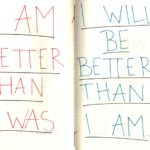 AM
ETTER
HAN
WAS.
I WILL
BE
BETTER
THAN
I AM.